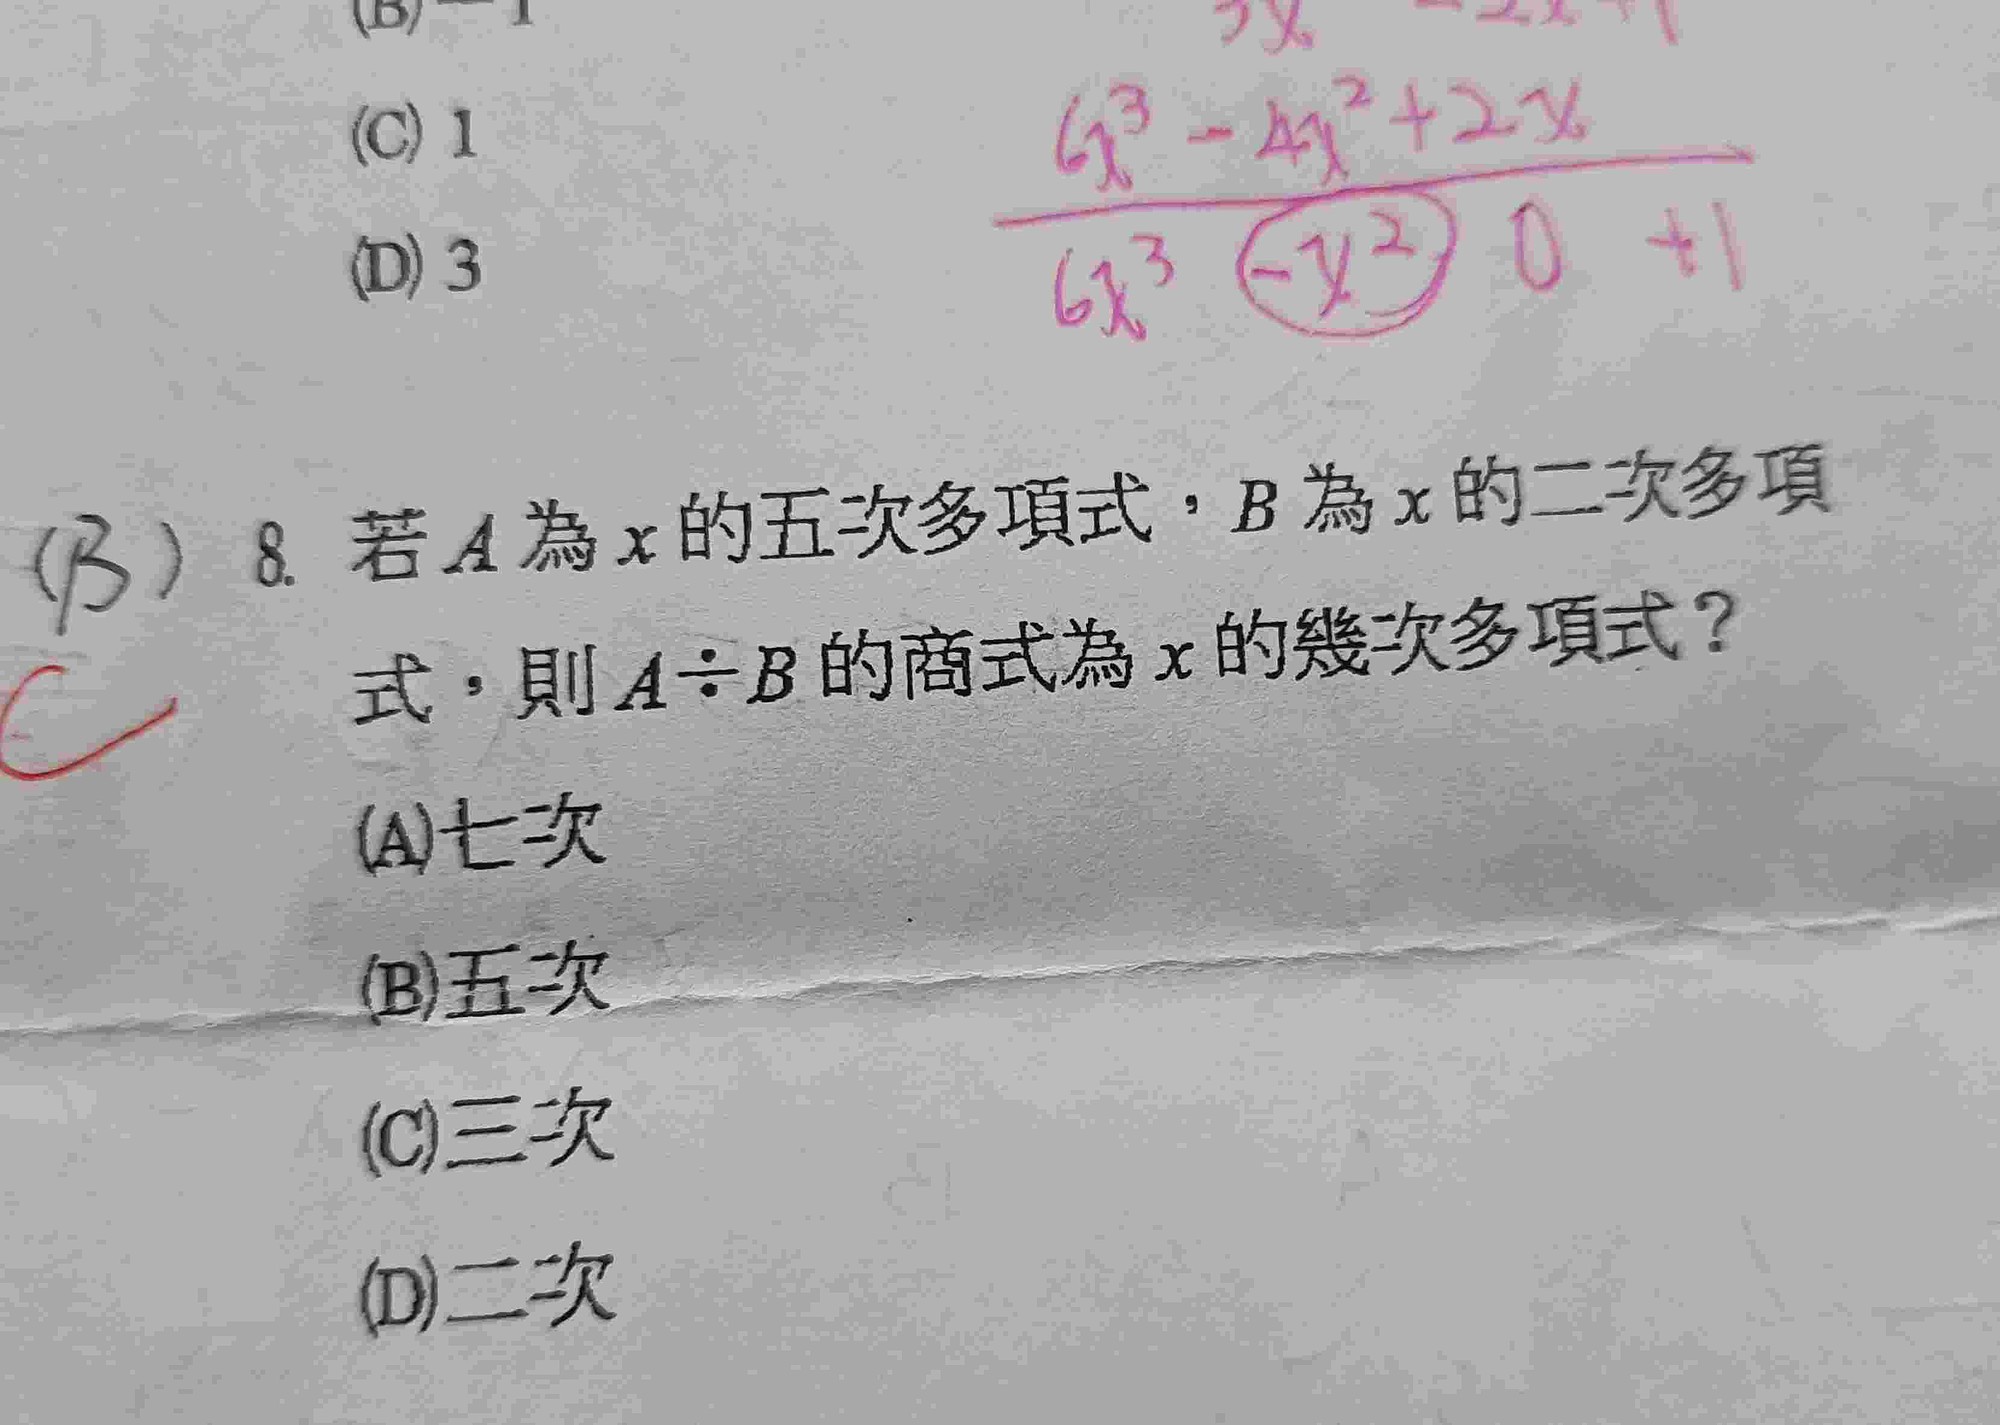 (B) －1
3x² －2x ＋1
(C) 1
6x³ － 4x² ＋ 2x
(D) 3
6x³ －x² 0 ＋1
(B) 8. 若 A 為 x 的五次多項式，B 為 x 的二次多項
式，則 A÷B 的商式為 x 的幾次多項式？
C
(A)七次
(B)五次
(C)三次
(D)二次